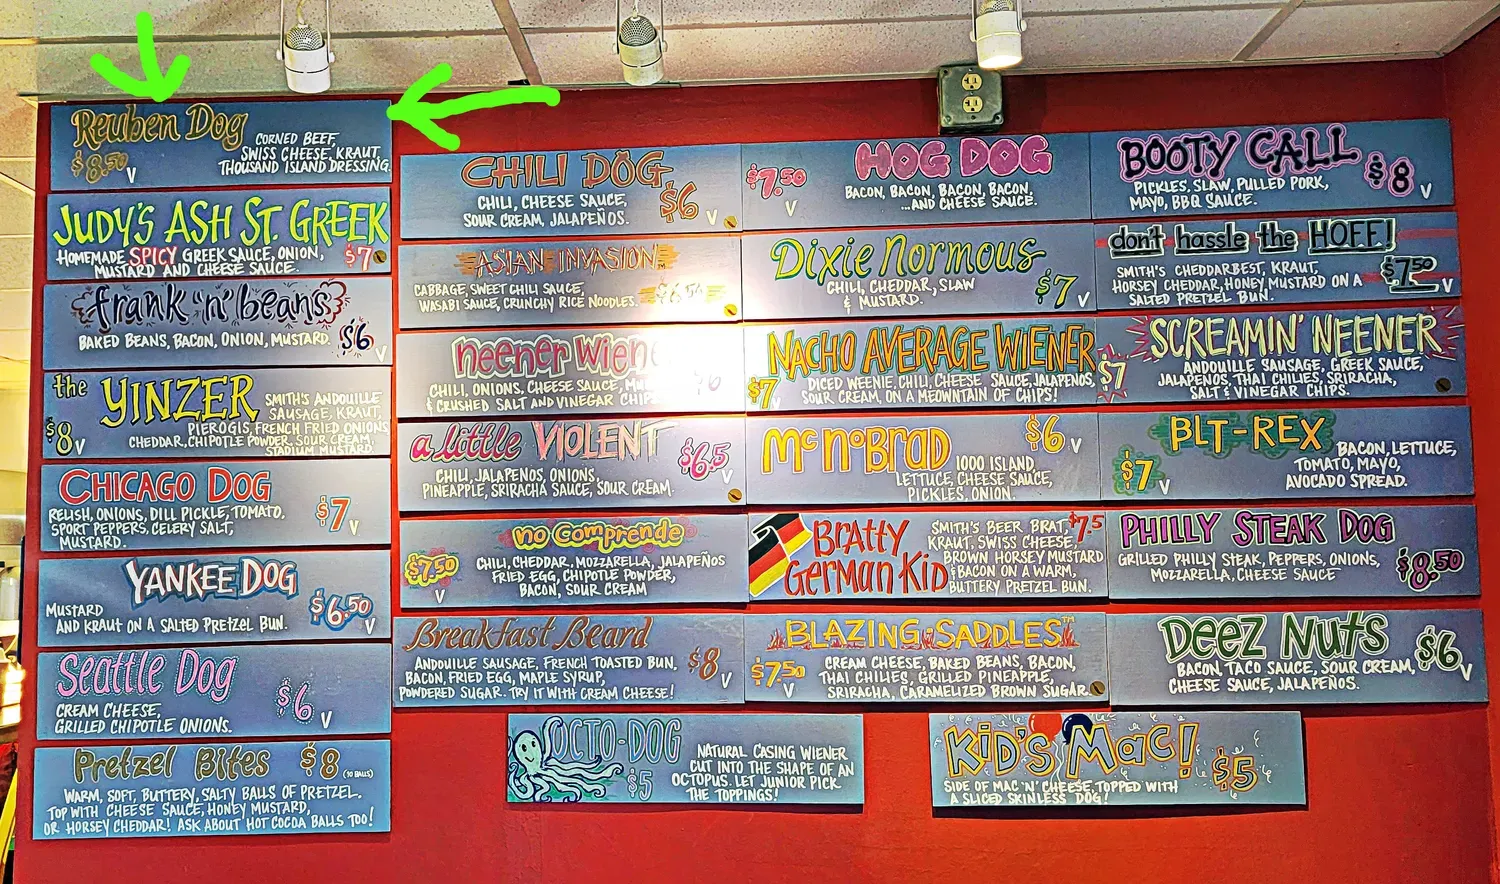 Reuben Dog
$8.50 V
CORNED BEEF,
SWISS CHEESE, KRAUT,
THOUSAND ISLAND DRESSING.
JUDY'S ASH ST. GREEK
HOMEMADE SPICY GREEK SAUCE, ONION,
MUSTARD AND CHEESE SAUCE.
$7
frank 'n' beans
BAKED BEANS, BACON, ONION, MUSTARD.
$6 V
the YINZER
$8 V
SMITH'S ANDOUILLE
SAUSAGE, KRAUT,
PIEROGIS, FRENCH FRIED ONIONS
CHEDDAR, CHIPOTLE POWDER, SOUR CREAM,
STADIUM MUSTARD.
CHICAGO DOG
RELISH, ONIONS, DILL PICKLE, TOMATO,
SPORT PEPPERS, CELERY SALT,
MUSTARD.
$7 V
YANKEE DOG
MUSTARD
AND KRAUT ON A SALTED PRETZEL BUN.
$6.50 V
Seattle Dog
CREAM CHEESE,
GRILLED CHIPOTLE ONIONS.
$6 V
Pretzel Bites $8 (10 BALLS)
WARM, SOFT, BUTTERY, SALTY BALLS OF PRETZEL.
TOP WITH CHEESE SAUCE, HONEY MUSTARD,
OR HORSEY CHEDDAR! ASK ABOUT HOT COCOA BALLS TOO!
CHILI DOG
CHILI, CHEESE SAUCE,
SOUR CREAM, JALAPEÑOS.
$6 V
ASIAN INVASION™
CABBAGE, SWEET CHILI SAUCE,
WASABI SAUCE, CRUNCHY RICE NOODLES.
neener wien
CHILI, ONIONS, CHEESE SAUCE,
& CRUSHED SALT AND VINEGAR
a little VIOLENT
CHILI, JALAPEÑOS, ONIONS,
PINEAPPLE, SRIRACHA SAUCE, SOUR CREAM.
$6.5 V
no Comprende
$7.50 V
CHILI, CHEDDAR, MOZZARELLA, JALAPEÑOS
FRIED EGG, CHIPOTLE POWDER,
BACON, SOUR CREAM
Breakfast Beard
ANDOUILLE SAUSAGE, FRENCH TOASTED BUN,
BACON, FRIED EGG, MAPLE SYRUP,
POWDERED SUGAR. TRY IT WITH CREAM CHEESE!
$8 V
HOG DOG
$7.50 V
BACON, BACON, BACON, BACON,
...AND CHEESE SAUCE.
Dixie Normous
CHILI, CHEDDAR, SLAW
& MUSTARD.
$7 V
NACHO AVERAGE WIENER
$7 V
DICED WEENIE, CHILI, CHEESE SAUCE, JALAPENOS,
SOUR CREAM, ON A MEOWNTAIN OF CHIPS!
McNoBrad
1000 ISLAND,
LETTUCE, CHEESE SAUCE,
PICKLES, ONION.
$6 V
Bratty
German Kid
SMITH'S BEER BRAT,
KRAUT, SWISS CHEESE,
BROWN HORSEY MUSTARD
& BACON ON A WARM,
BUTTERY PRETZEL BUN.
$7.5
BLAZING SADDLES™
$7.50 V
CREAM CHEESE, BAKED BEANS, BACON,
THAI CHILIES, GRILLED PINEAPPLE,
SRIRACHA, CARAMELIZED BROWN SUGAR.
BOOTY CALL
PICKLES, SLAW, PULLED PORK,
MAYO, BBQ SAUCE.
$8 V
don't hassle the HOFF!
SMITH'S CHEDDARBEST, KRAUT,
HORSEY CHEDDAR, HONEY MUSTARD ON A
SALTED PRETZEL BUN.
$7.50 V
SCREAMIN' NEENER
$7
ANDOUILLE SAUSAGE, GREEK SAUCE,
JALAPEÑOS, THAI CHILIES, SRIRACHA,
SALT & VINEGAR CHIPS.
BLT-REX
$7 V
BACON, LETTUCE,
TOMATO, MAYO,
AVOCADO SPREAD.
PHILLY STEAK DOG
GRILLED PHILLY STEAK, PEPPERS, ONIONS,
MOZZARELLA, CHEESE SAUCE
$8.50 V
Deez Nuts
BACON, TACO SAUCE, SOUR CREAM,
CHEESE SAUCE, JALAPEÑOS.
$6 V
OCTO-DOG
$5
NATURAL CASING WIENER
CUT INTO THE SHAPE OF AN
OCTOPUS. LET JUNIOR PICK
THE TOPPINGS!
KID'S MAC!
SIDE OF MAC 'N' CHEESE, TOPPED WITH
A SLICED SKINLESS DOG!
$5